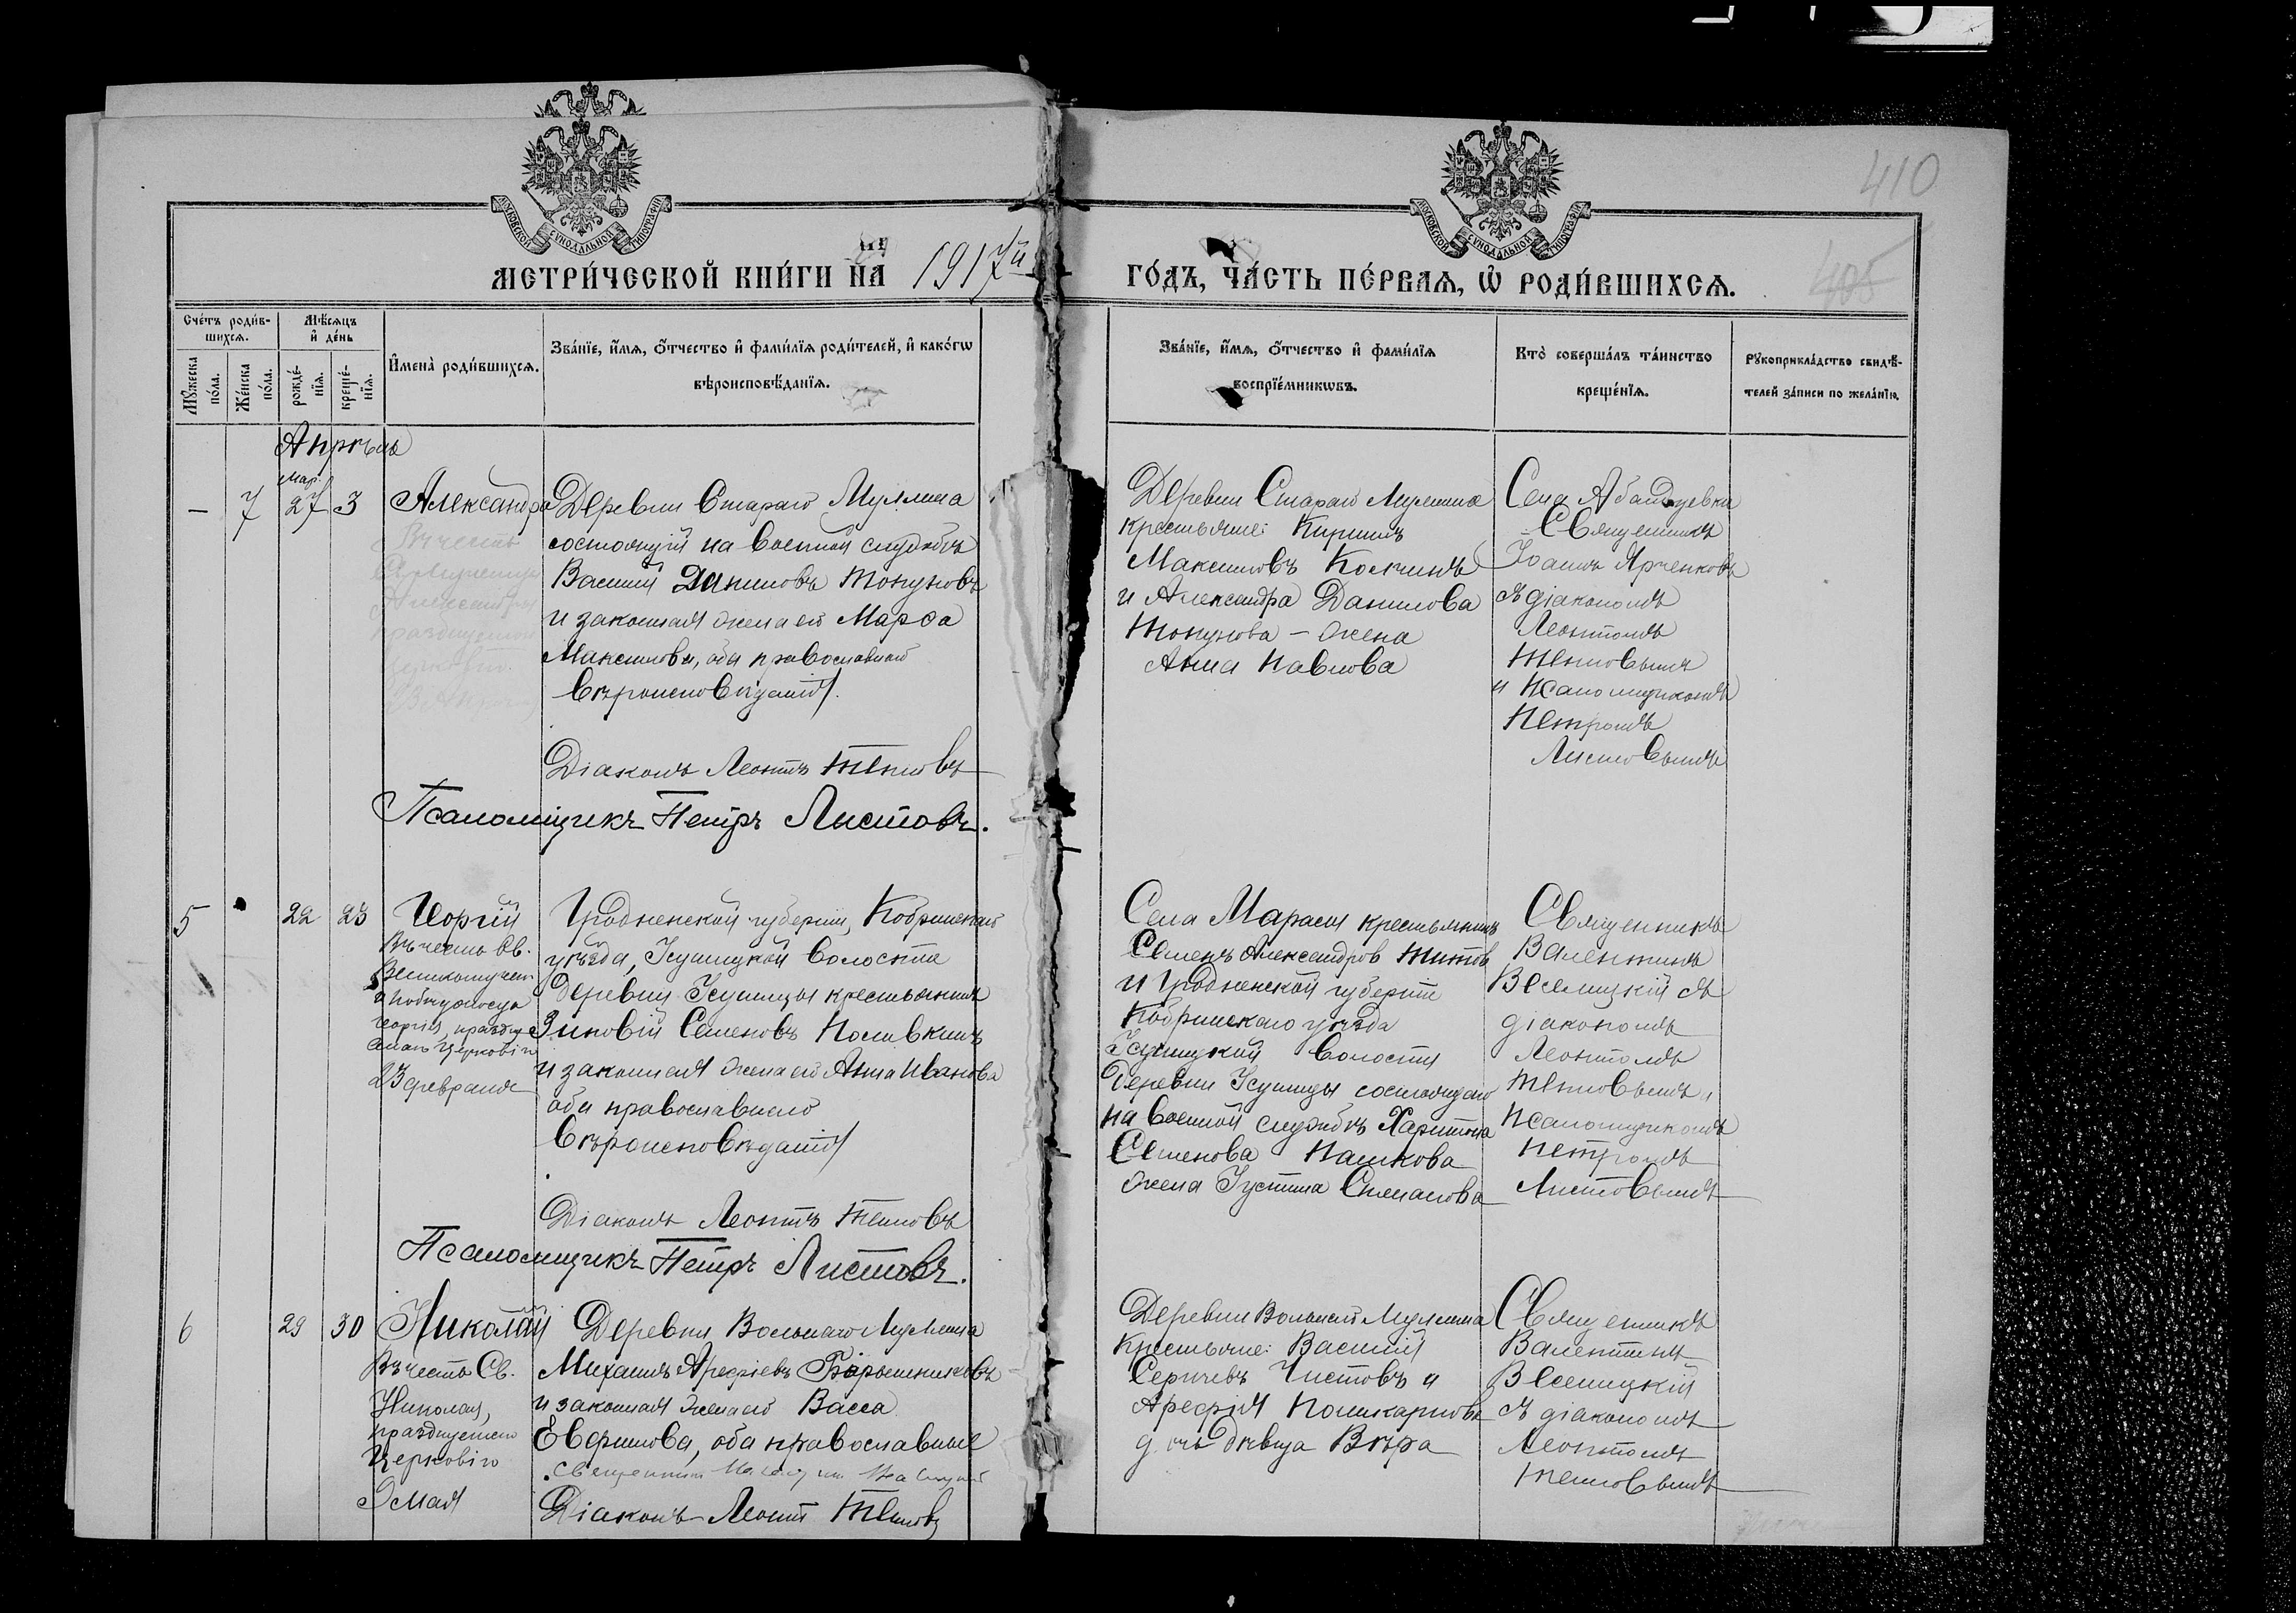 410
405
МОСКОВСКОЙ СѴНОДАЛЬНОЙ ТИПОГРАФІИ
МОСКОВСКОЙ СѴНОДАЛЬНОЙ ТИПОГРАФІИ
МЕТРИ́ЧЕСКОЙ КНИ́ГИ НА 1917й ГО́ДЪ, ЧА́СТЬ ПЕ́РВАѦ, Ѡ҆ РОДИ́ВШИХСѦ.
Сче́тъ роди́в-
шихсѧ.
Мꙋ́жеска
по́ла.
Же́нска
по́ла.
Мѣ́сѧцъ
и҆ де́нь
рожде́-
нїѧ.
креще́-
нїѧ.
И҆мена̀ роди́вшихсѧ.
Зва́нїе, и҆́мѧ, ѻ҆́тчество и҆ фами́лїѧ роди́телей, и҆ како́гѡ
вѣроисповѣ́данїѧ.
Зва́нїе, и҆́мѧ, ѻ҆́тчество и҆ фами́лїѧ
воспрїе́мникѡвъ.
Кто̀ соверша́лъ та́инство
креще́нїѧ.
Рꙋкоприкла́дство свидѣ́-
телей за́писи по жела́нїю.
Апрѣль
мар.
— 7 27 3
Александра
Въ честь
Александры
празднуемой
церковію
Деревни Стараго Муллина
состоящій на военной службѣ
Василій Даниловъ Топуновъ
и законная жена его Марѳа
Максимова, оба православнаго
вѣроисповѣданія.
Діаконъ Леонтъ Тепловъ
Псаломщикъ Петръ Листовъ.
Деревни Стараго Муллина
крестьяне: Кириллъ
Максимовъ
и Александра Данилова
Топунова – жена
Анна Павлова
Села
Священникъ
Іоаннъ Ярченковъ
съ діакономъ
Леонтомъ
Тепловымъ
и псаломщикомъ
Петромъ
Листовымъ
5 22 23
Георгій
Въ честь Св.
Великомучен.
и Побѣдоносца
Георгія, праздну
емаго церковію
23 февраля
Гродненской губерніи, Кобринскаго
уѣзда, волости
деревни крестьянинъ
Зиновій Семеновъ Поливкинъ
и законная жена его Анна Иванова
оба православнаго
вѣроисповѣданія
Діаконъ Леонтъ Тепловъ
Псаломщикъ Петръ Листовъ.
Села крестьянинъ
Семенъ Александров Титов
и Гродненской губерніи
Кобринскаго уѣзда
волости
деревни состоящаго
на военной службѣ Харитона
Семенова Пашкова
жена Іустина Степанова
Священникъ
Валентинъ
Веселицкій съ
діакономъ
Леонтомъ
Тепловымъ и
псаломщикомъ
Петромъ
Листовымъ
6 29 30
Николай
Въ честь Св.
Николая,
празднуемаго
Церковію
9 мая
Деревни Вольнаго Муллина
Михаилъ Арефіевъ
и законная жена его Васса
оба православные
Діаконъ Леонт Тепловъ
Деревни Вольнаго Муллина
крестьяне: Василій
Чистовъ и
Арефія Поликарпова
дочь дѣвица Вѣра
Священникъ
Валентинъ
Веселицкій
съ діакономъ
Леонтомъ
Тепловымъ